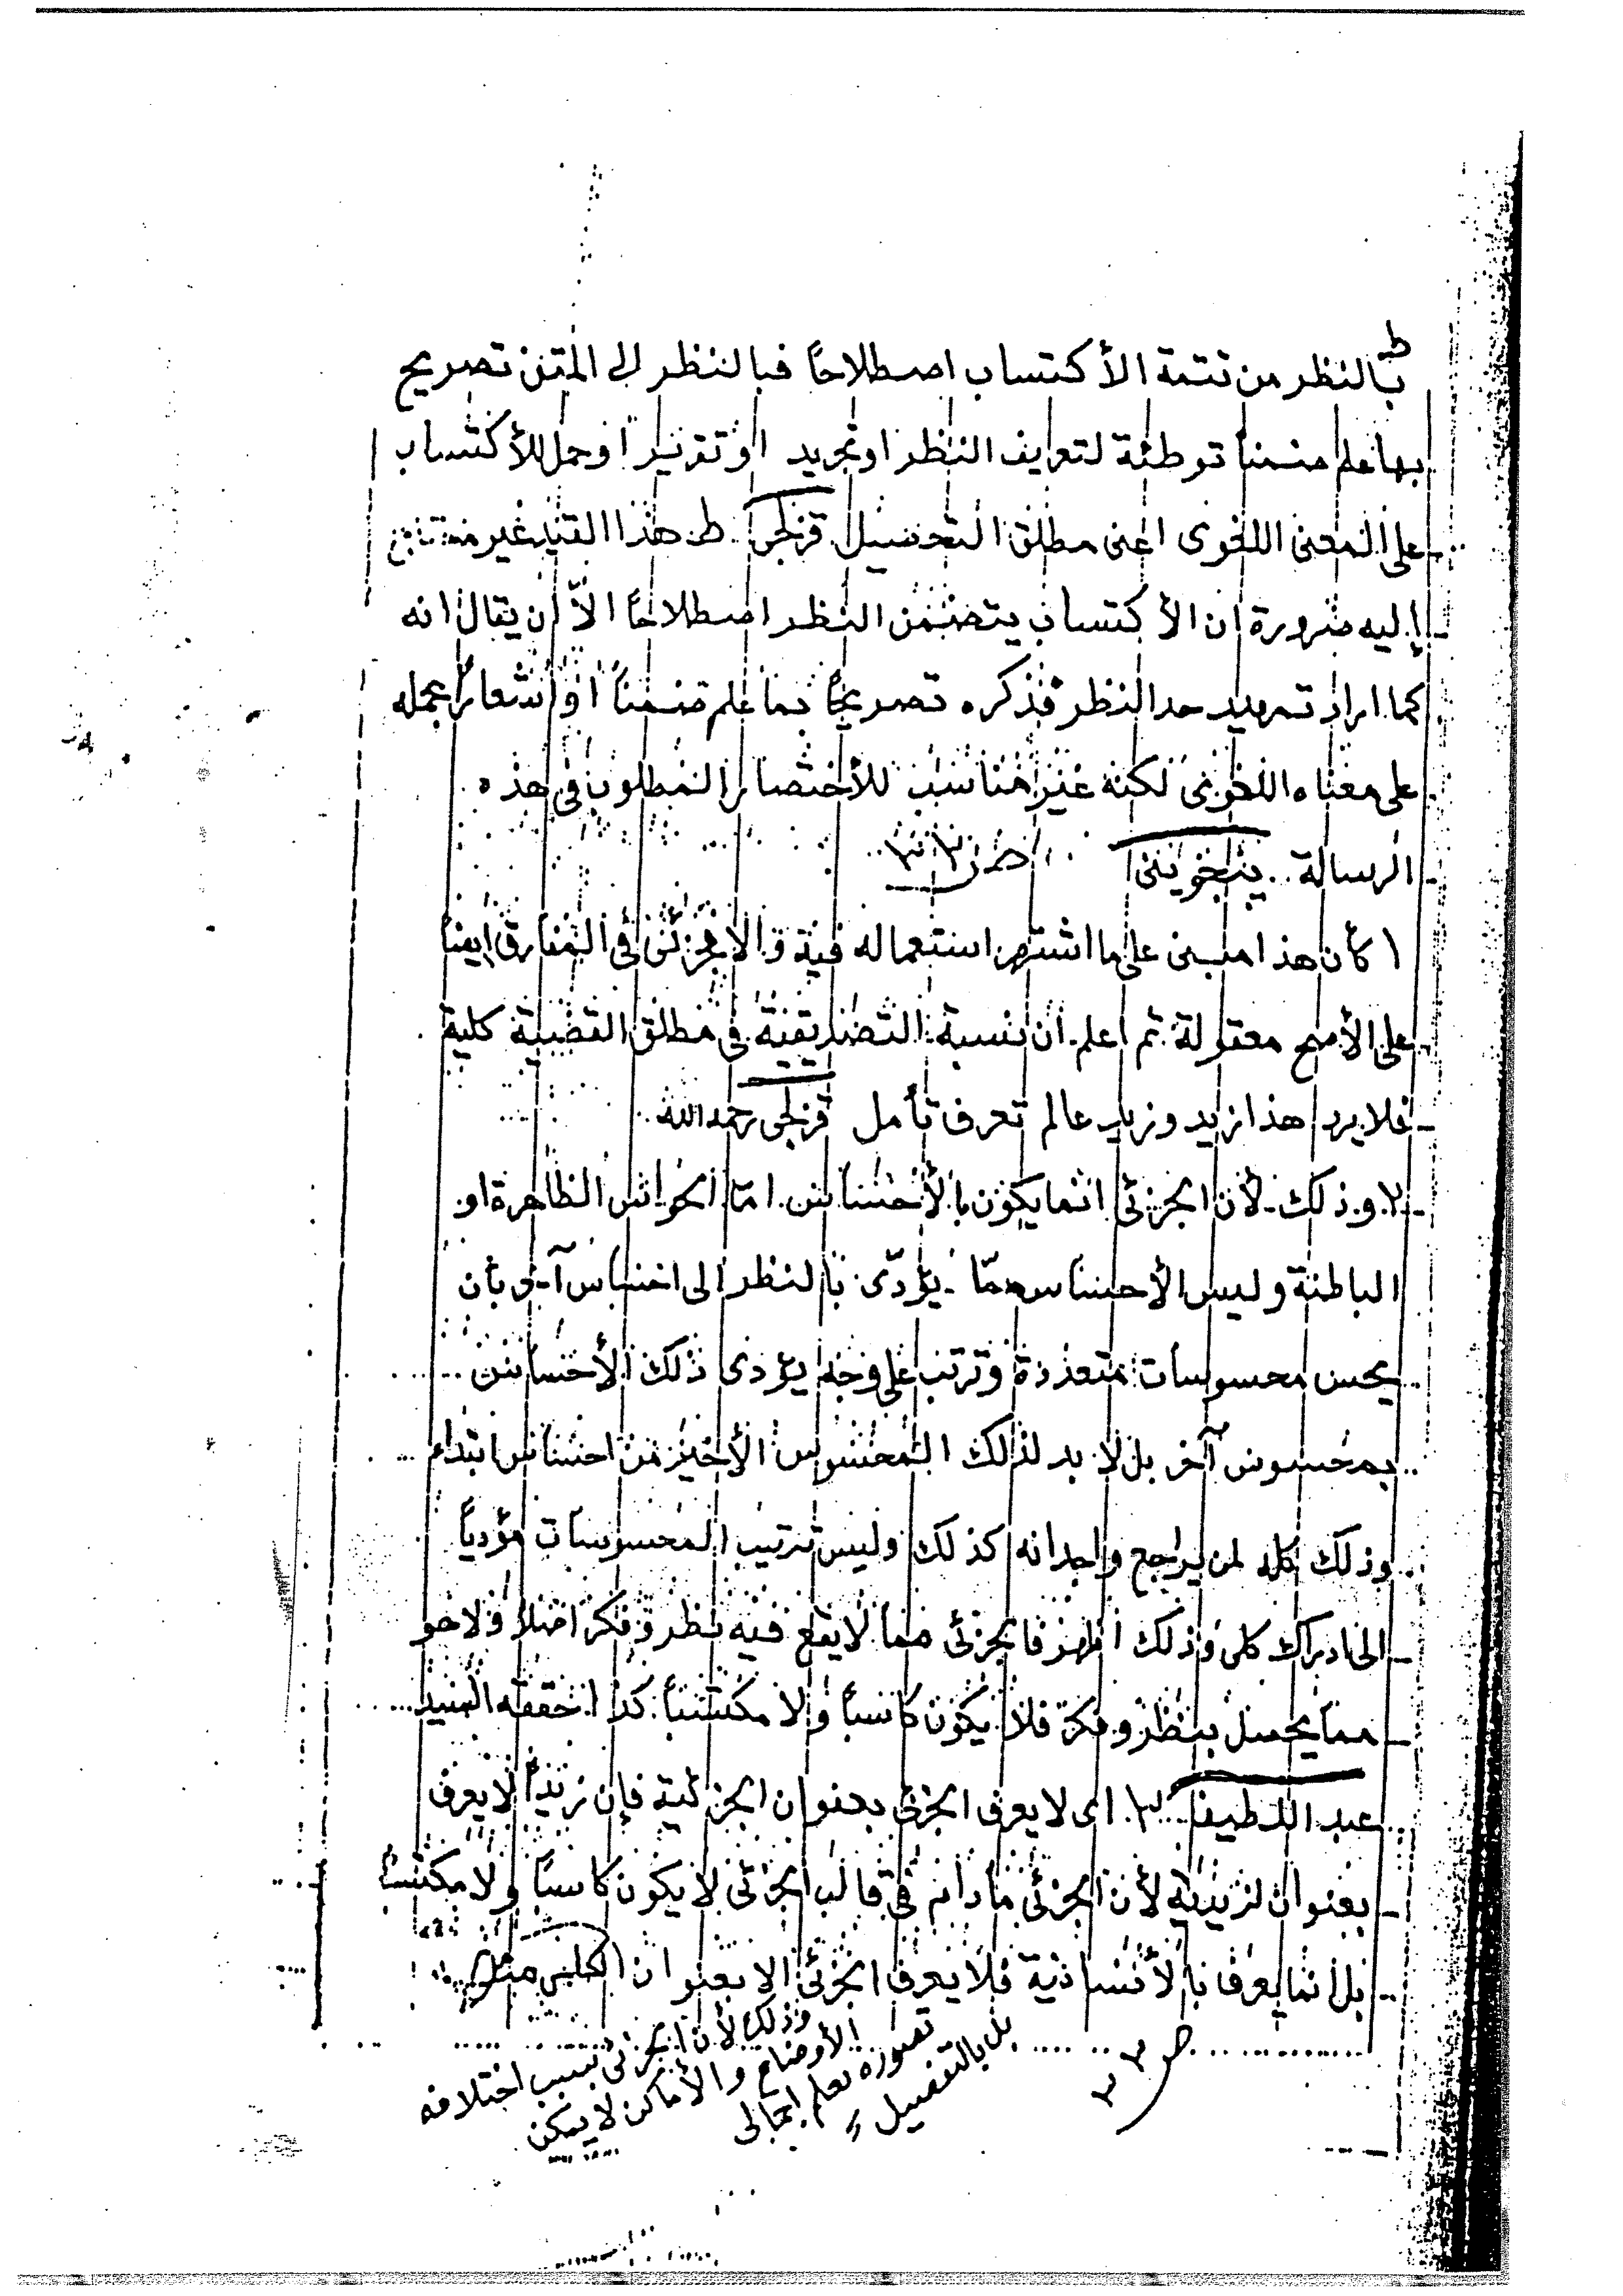 ط
بالنظر من تتمة الأكتساب اصطلاحًا فبالنظر الى المتن تصريح
بما علم ضمنًا توطئة لتعريف النظر او تجريد او تقرير او حمل للأكتساب
على المعنى اللغوى اعنى مطلق التحصيل قزلجى ط هذا القيد غير محتاج
إليه ضرورة ان الأكتساب يتضمن النظر اصطلاحًا الاّ ان يقال انه
كما اراد تمهيد حد النظر فذكره تصريحًا بما علم ضمنًا او اشعارًا بحمله
على معناه اللغوى لكنه غير مناسب للأختصار المطلوب فى هذه
الرسالة پينجوينى ص ٣٢
١ كأن هذا مبنى على ما اشتهر استعماله فيه و الا فجزئى فى المفارق ايضًا
على الأصح معقولة ثم اعلم ان نسبة التصديقية فى مطلق القضية كلية
فلا يرد هذا زيد وزيد عالم تعرف تأمل قزلجى رحمه الله
٢ وذلك لأن الجزئى انما يكون بالأحساس امّا الحواس الظاهرة او
الباطنة وليس الأحساس ممّا يؤدّى بالنظر الى احساس آخر بأن
يحس محسوسات متعددة وترتب على وجه يؤدى ذلك الأحساس
بمحسوس آخر بل لا بد لذلك المحسوس الأخير من احساس ابتداء
وذلك كله لمن يراجع واجدانه كذلك وليس ترتيب المحسوسات مؤديًا
الى ادراك كلى وذلك اظهر فالجزئى مما لا يقع فيه نظر وفكر اصلا ولا هو
مما يحصل بنظر وفكر فلا يكون كاسبًا ولا مكتسبًا كذا حققه السيد
عبد اللطيف ٣ اى لا يعرف الجزئى بعنوان الجزئية فإن زيدًا لا يعرف
بعنوان لزيدية لأن الجزئى مادام فى قالب الجزئى لا يكون كاسبًا ولا مكتسبًا
بل انما يعرف بالأنسانية فلا يعرف الجزئى الا بعنوان الكلى مثلا
وذلك لأن الجزئى بسبب اختلافه
الأوضاع والأماكن لا يمكن
تصوره بعلم اجمالى
بل بالتفصيل
ص ٣٣